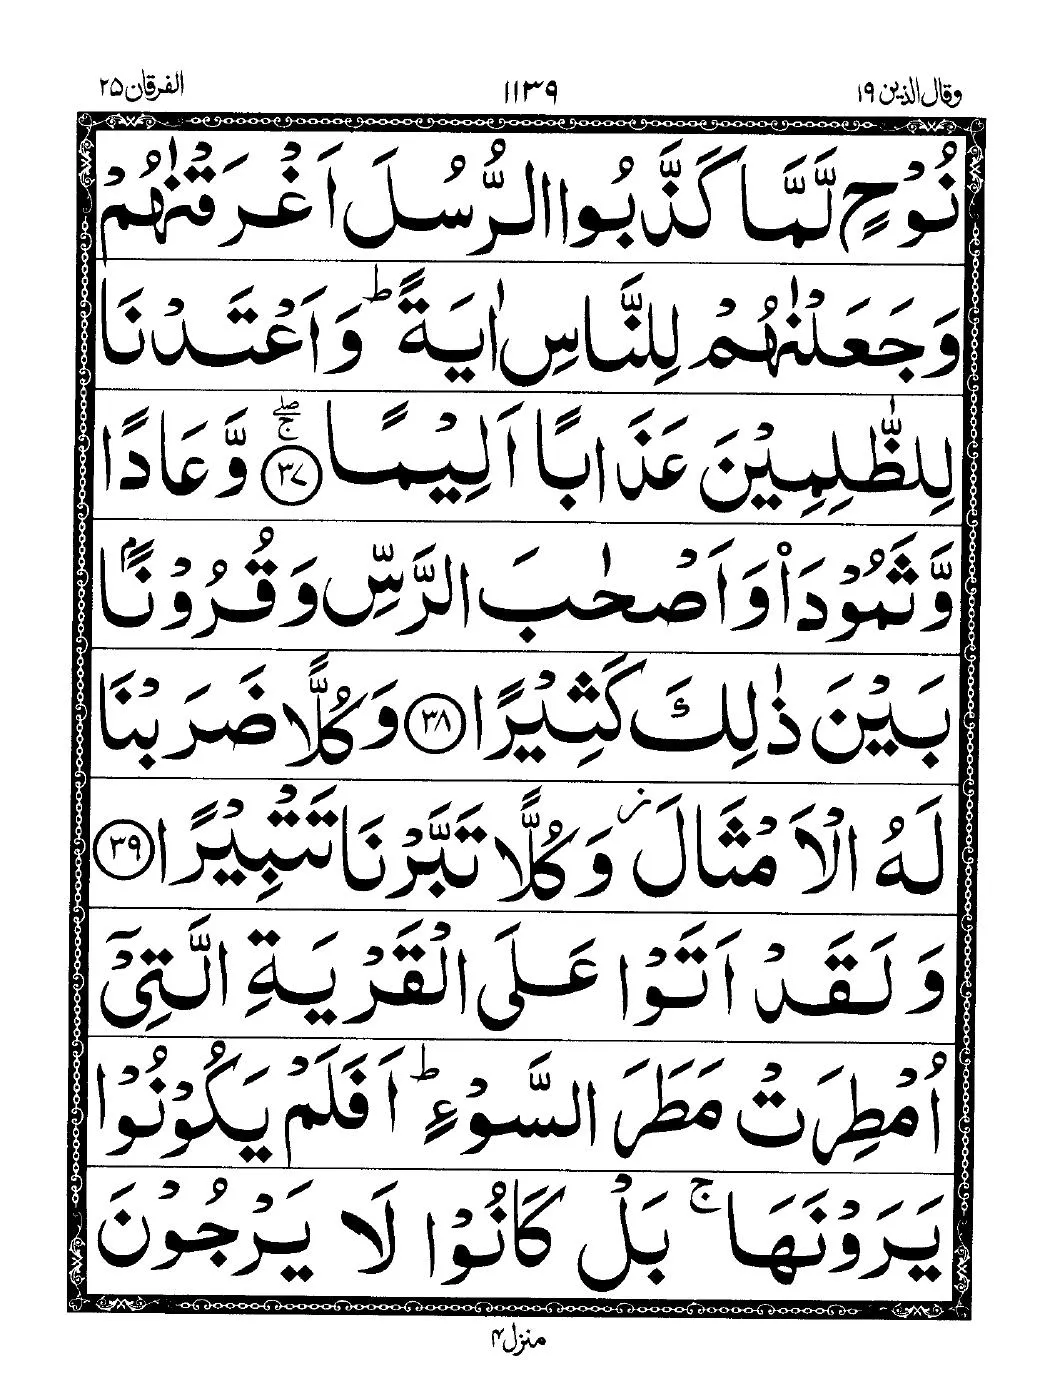 وقال الذين ١٩ ١١٣٩ الفرقان ٢٥
نُوْحٍ لَّمَّا كَذَّبُوا الرُّسُلَ اَغْرَقْنٰهُمْ
وَجَعَلْنٰهُمْ لِلنَّاسِ اٰيَةً ؕ وَاَعْتَدْنَا
لِلظّٰلِمِيْنَ عَذَابًا اَلِيْمًا ۚۖ ﴿٣٧﴾ وَّعَادًا
وَّثَمُوْدَا۟ وَاَصْحٰبَ الرَّسِّ وَقُرُوْنًۢا
بَيْنَ ذٰلِكَ كَثِيْرًا ﴿٣٨﴾ وَكُلًّا ضَرَبْنَا
لَهُ الْاَمْثَالَ ز وَكُلًّا تَبَّرْنَا تَتْبِيْرًا ﴿٣٩﴾
وَلَقَدْ اَتَوْا عَلَى الْقَرْيَةِ الَّتِيْۤ
اُمْطِرَتْ مَطَرَ السَّوْءِ ؕ اَفَلَمْ يَكُوْنُوْا
يَرَوْنَهَا ۚ بَلْ كَانُوْا لَا يَرْجُوْنَ
منزل ۴